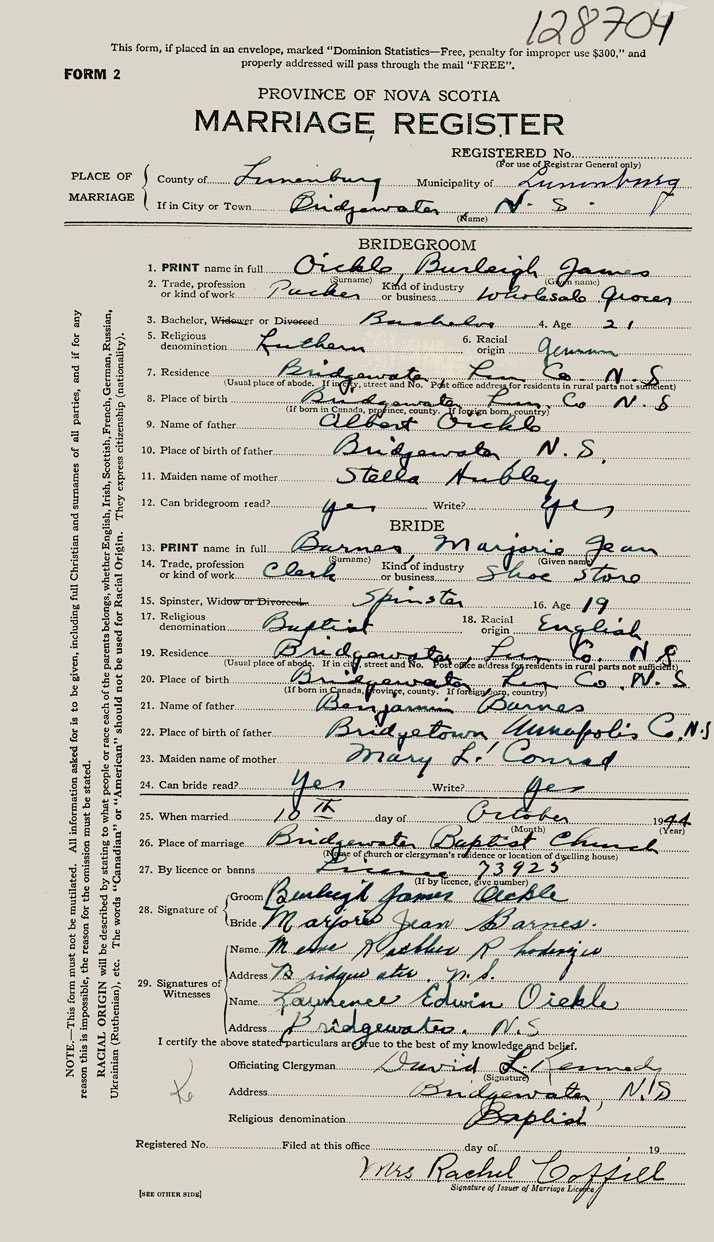 128704
This form, if placed in an envelope, marked "Dominion Statistics—Free, penalty for improper use $300," and
properly addressed will pass through the mail "FREE".
FORM 2
PROVINCE OF NOVA SCOTIA
MARRIAGE REGISTER
REGISTERED No.
(For use of Registrar General only)
PLACE OF MARRIAGE
County of Lunenburg Municipality of Lunenburg
If in City or Town Bridgewater N. S.
(Name)
BRIDEGROOM
1. PRINT name in full Oickle, Burleigh James
(Surname) (Given name)
2. Trade, profession or kind of work Packer Kind of industry or business Wholesale Grocer
3. Bachelor, Widower or Divorced Bachelor 4. Age 21
5. Religious denomination Luthern 6. Racial origin German
7. Residence Bridgewater, Lun Co. N. S
(Usual place of abode. If in city, street and No. Post office address for residents in rural parts not sufficient)
8. Place of birth Bridgewater, Lun. Co N. S
(If born in Canada, province, county. If foreign born, country)
9. Name of father Albert Oickle
10. Place of birth of father Bridgewater, N. S.
11. Maiden name of mother Stella Hubley
12. Can bridegroom read? yes Write? yes
BRIDE
13. PRINT name in full Barnes, Marjorie Jean
(Surname) (Given name)
14. Trade, profession or kind of work Clerk Kind of industry or business Shoe Store
15. Spinster, Widow or Divorced Spinster 16. Age 19
17. Religious denomination Baptist 18. Racial origin English
19. Residence Bridgewater, Lun Co. N. S
(Usual place of abode. If in city, street and No. Post office address for residents in rural parts not sufficient)
20. Place of birth Bridgewater Lun Co. N. S
(If born in Canada, province, county. If foreign born, country)
21. Name of father Benjamin Barnes
22. Place of birth of father Bridgetown Annapolis Co. N.S
23. Maiden name of mother Mary L. Conrad
24. Can bride read? Yes Write? Yes
25. When married 10TH day of October 1944
(Month) (Year)
26. Place of marriage Bridgewater Baptist Church
(Name of church or clergyman's residence or location of dwelling house)
27. By licence or banns Licence 73925
(If by licence, give number)
28. Signature of
Groom Burleigh James Oickle
Bride Marjorie Jean Barnes.
29. Signatures of Witnesses
Name
Address Bridgewater, N. S.
Name Lawrence Edwin Oickle
Address Bridgewater. N.S
I certify the above stated particulars are true to the best of my knowledge and belief.
Officiating Clergyman David L. Kennedy
(Signature)
Address Bridgewater, N.S
Religious denomination Baptist
Registered No. Filed at this office day of 19
Mrs Rachel Coffill
Signature of Issuer of Marriage Licence
[SEE OTHER SIDE]
NOTE.—This form must not be mutilated. All information asked for is to be given, including full Christian and surnames of all parties, and if for any
reason this is impossible, the reason for the omission must be stated.
RACIAL ORIGIN will be described by stating to what people or race each of the parents belongs, whether English, Irish, Scottish, French, German, Russian,
Ukrainian (Ruthenian), etc. The words "Canadian" or "American" should not be used for Racial Origin. They express citizenship (nationality).